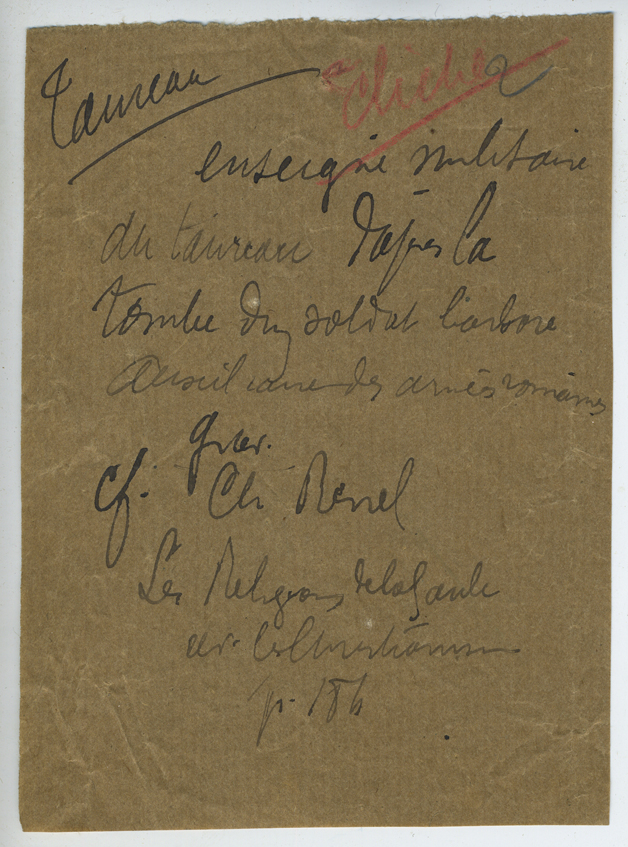 Taureau
Cliché 2
enseigne militaire
du taureau d'après la
tombe d'un soldat barbare
auxiliaire des armées romaines
grav.
cf. Ch. Renel
Les Religions de la Gaule
av. le Christianisme
p. 186